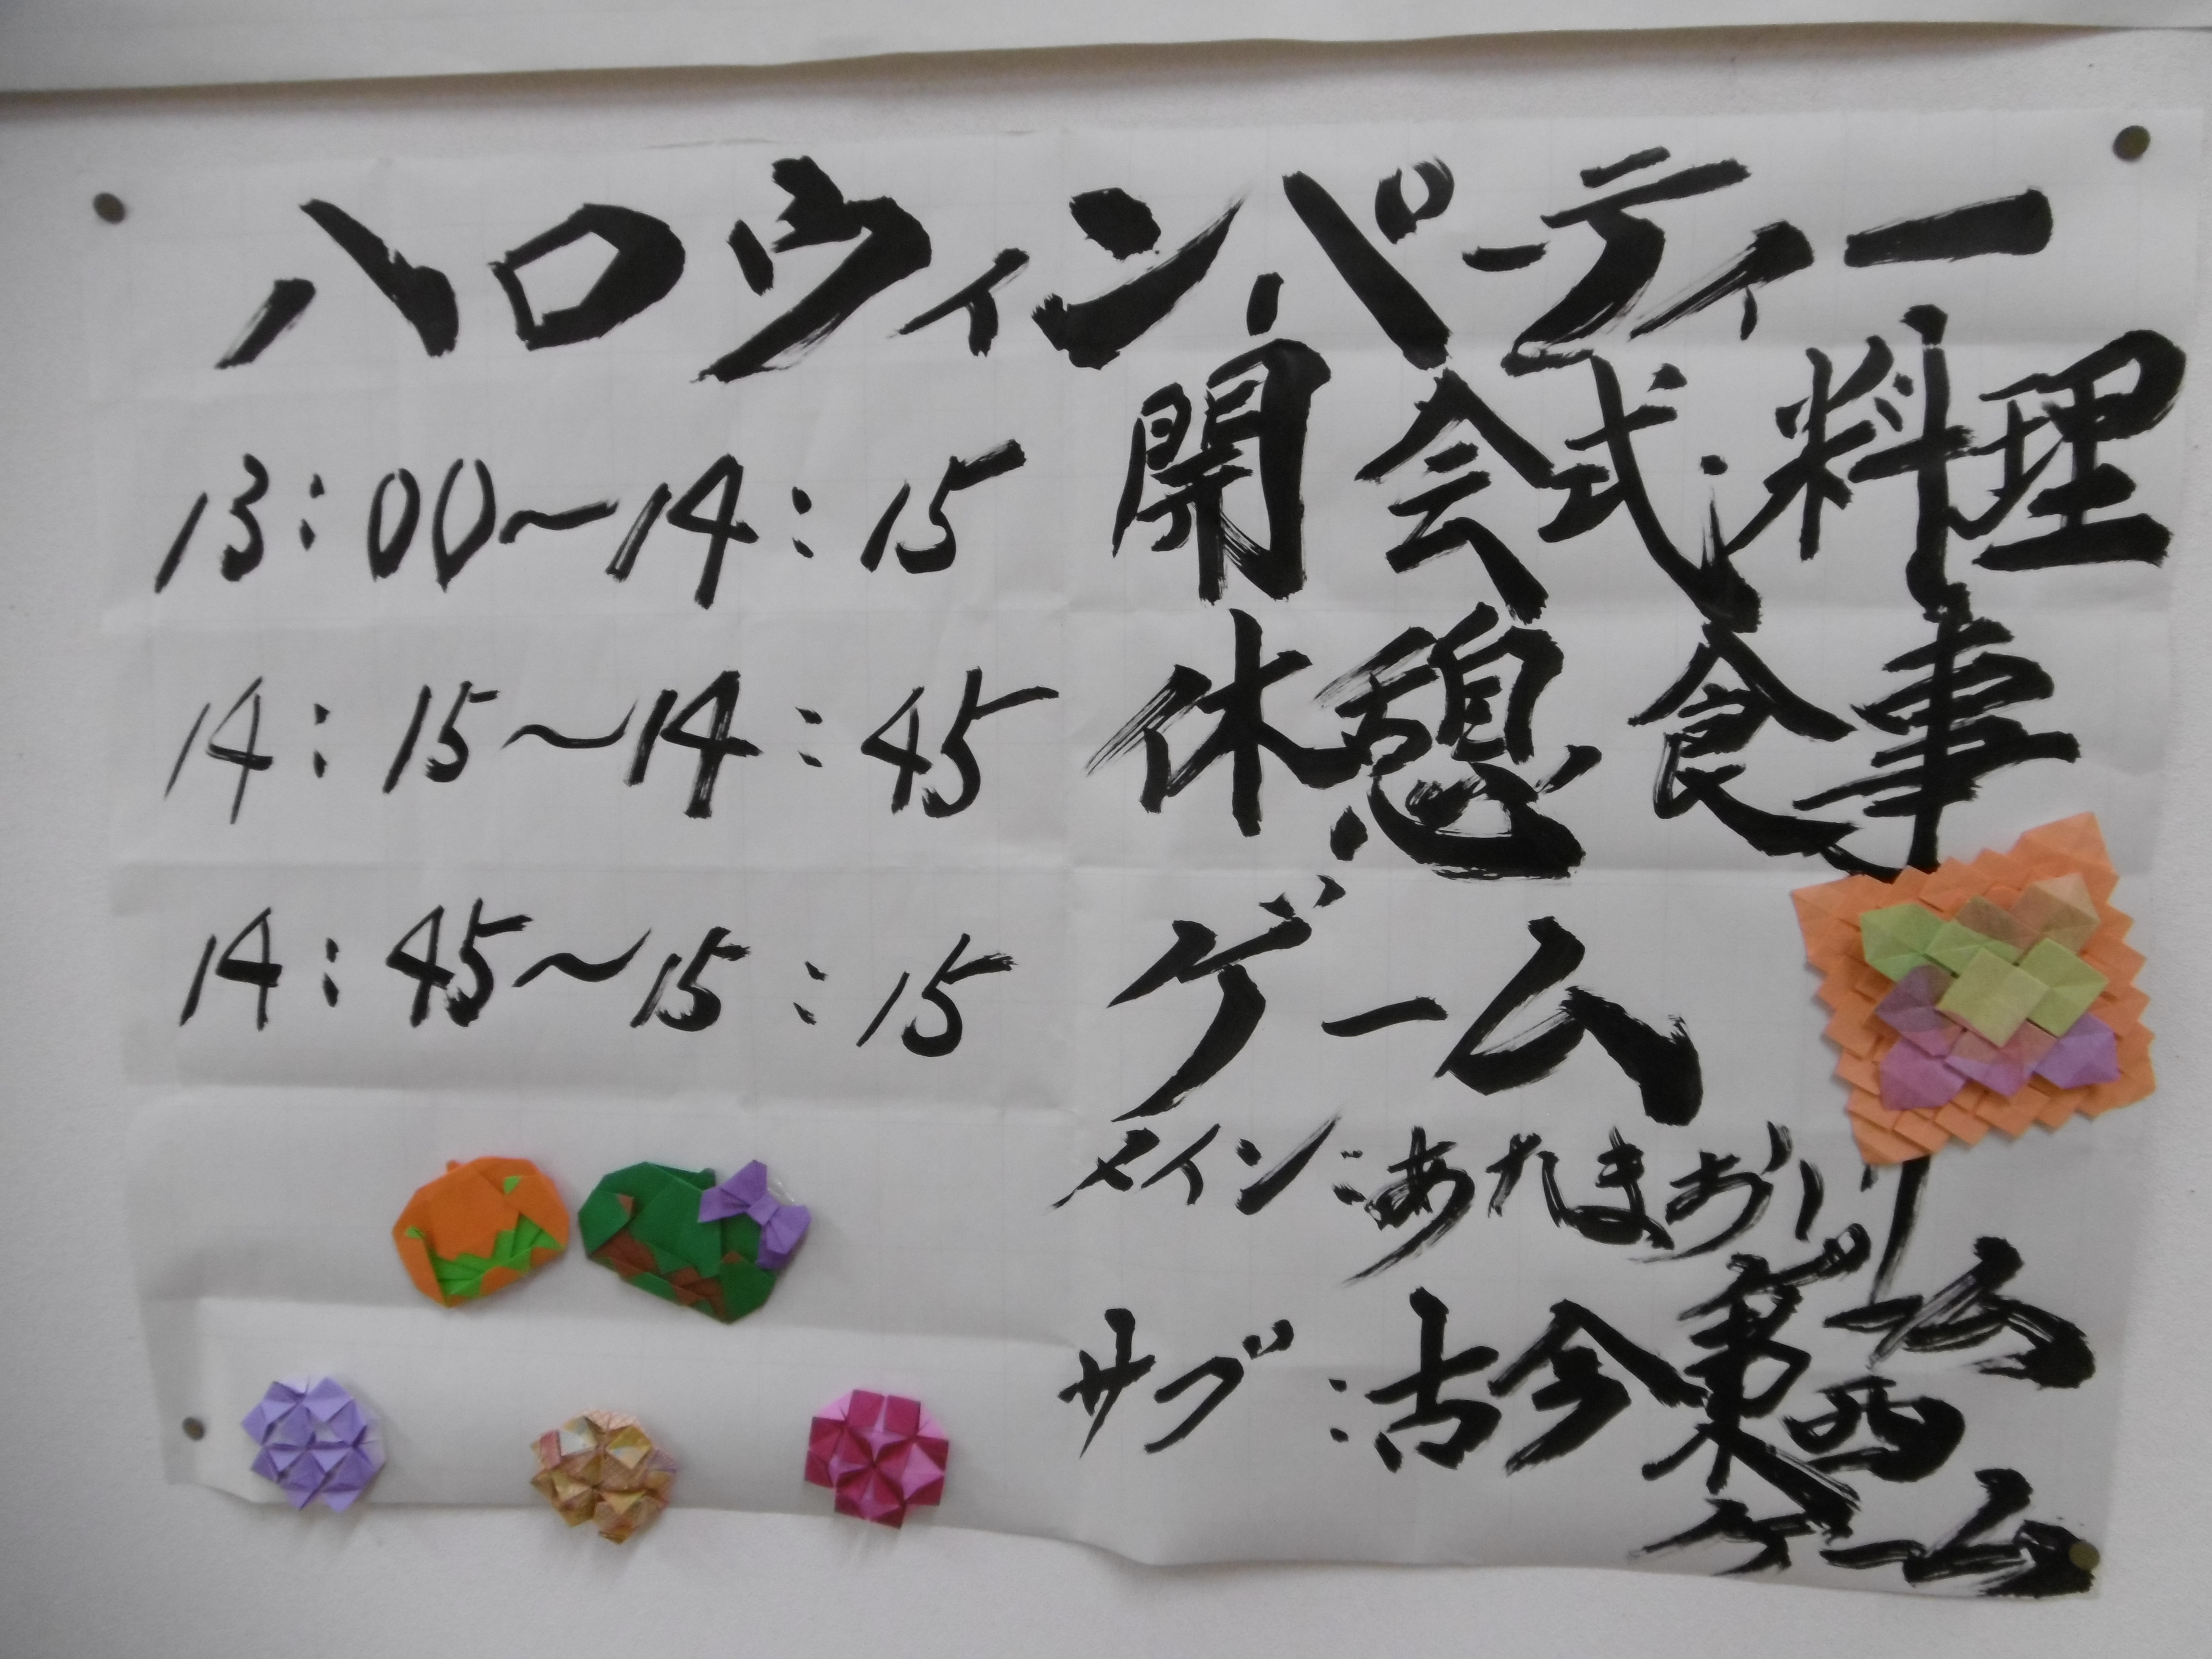 ハロウィンパーティー
13:00～14:15 開会式・料理
14:15～14:45 休憩・食事
14:45～15:15 ゲーム
メイン:あたまおじ
ゲーム
サブ:古今東西
ゲーム